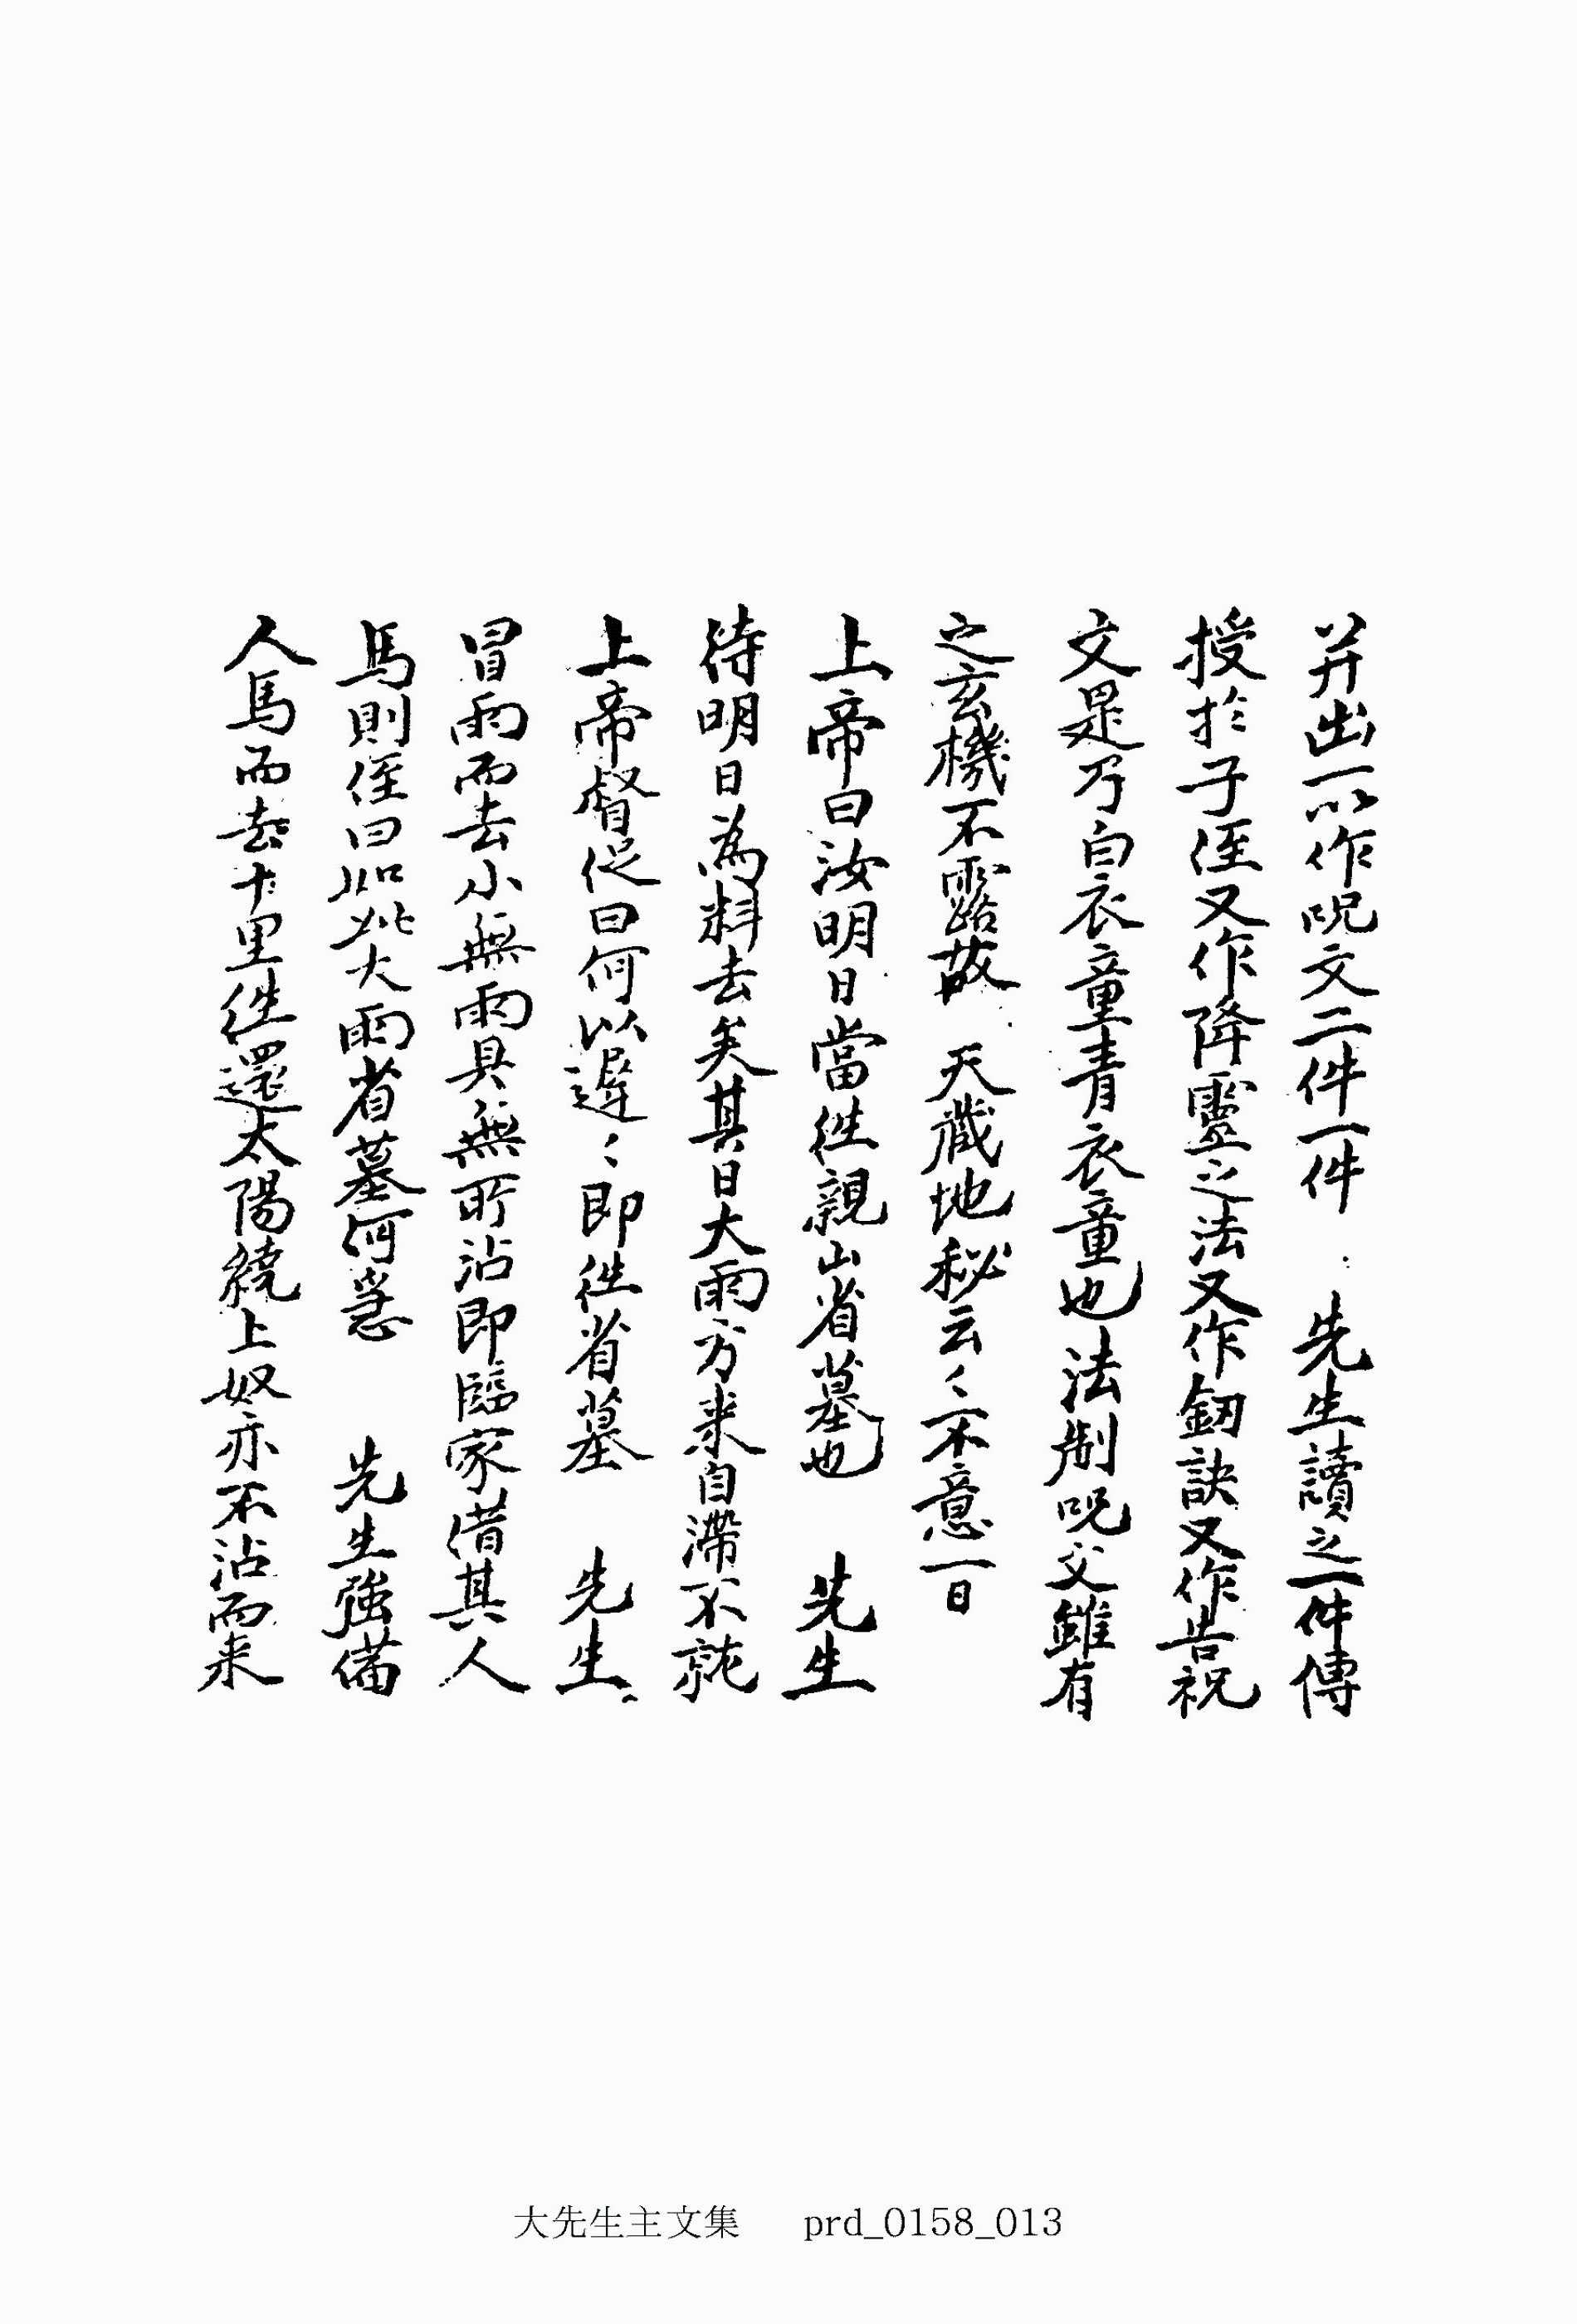 并出一以作呪文二件一件 先生讀之一件傳
授於子侄又作降靈之法又作釰訣又作告祝
文是乃白衣童青衣童也法制呪文雖有
之玄機不露故 天藏地秘云〻不意一日
上帝曰汝明日當徃親山省墓也 先生
待明日為料去矣其日大雨方来自滯不就
上帝督促曰何以遅〻即徃省墓 先生
冒雨而去小無雨具無所沾即臨家借其人
馬則侄曰如此大雨省墓何急 先生強備
人馬而去十里徃還太陽繞上奴亦不沾而来
大先生主文集 prd_0158_013